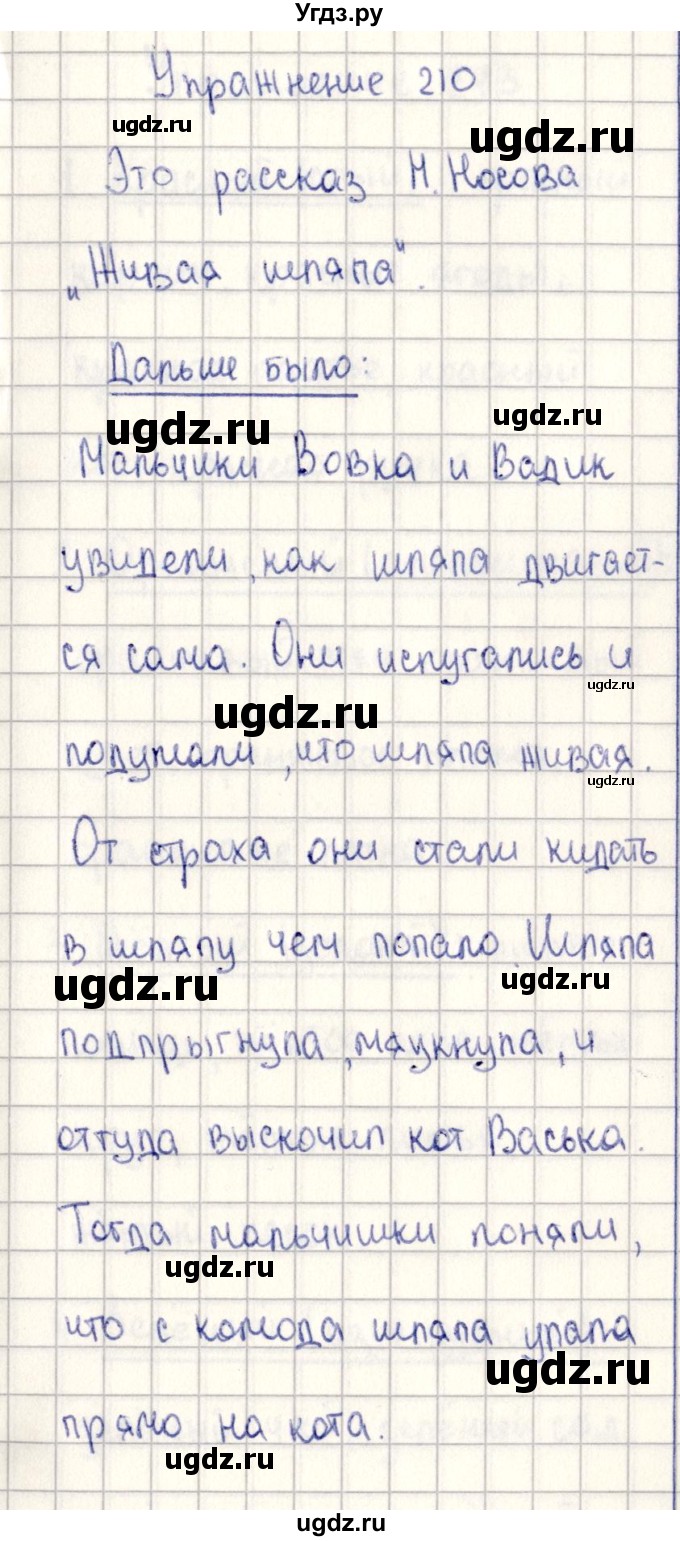 Угдз.ру
Упражнение 210
ugdz.ru
ugdz.ru
Это рассказ Н. Носова
„Живая шляпа".
Дальше было:
ugdz.ru
ugdz.ru
Мальчики Вовка и Вадик
увидели, как шляпа двигает-
ся сама. Они испугались и
ugdz.ru
ugdz.ru
подумали, что шляпа живая.
ugdz.ru
От страха они стали кидать
в шляпу чем попало. Шляпа
ugdz.ru
ugdz.ru
подпрыгнула, мяукнула, и
оттуда выскочил кот Васька.
Тогда мальчишки поняли,
ugdz.ru
что с комода шляпа упала
ugdz.ru
прямо на кота.
ugdz.ru
ugdz.ru